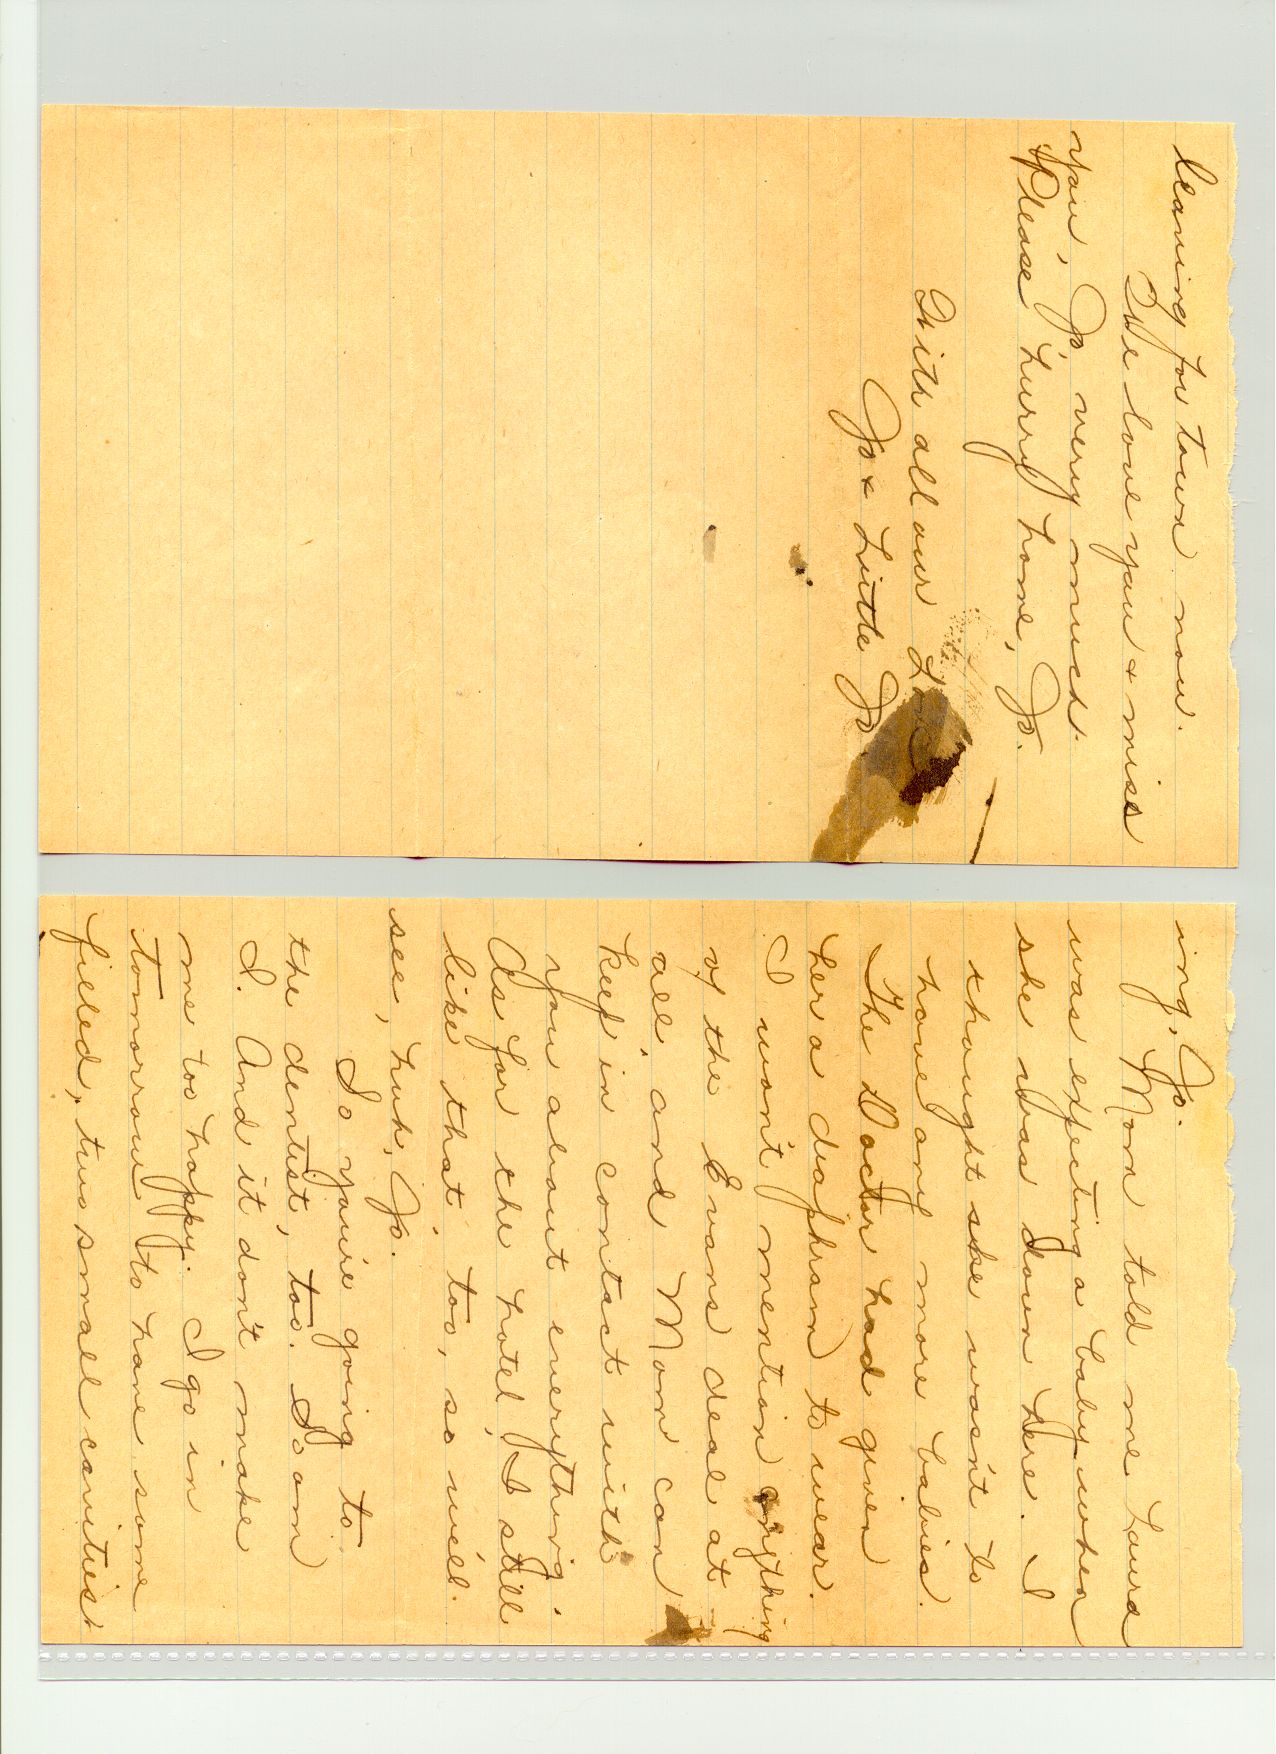 leaving for town now.
We love you & miss
you, Jo, very much.
Please hurry home, Jo.
With all our Love
Jo & Little Jo
ing, Jo.
Mom told me Laura
was expecting a baby when
she was down here. I
thought she wasn't to
have any more babies.
The Doctor had given
her a diaphram to wear.
I won't mention anything
of the Evans deal at
all, and Mom can
keep in contact with
you about everything.
As for the hotel, I still
like that, too, so we'll
see, huh, Jo.
So you're going to
the dentist, too. So am
I. And it don't make
me too happy. I go in
tomorrow to have some
filled, two small cavities.